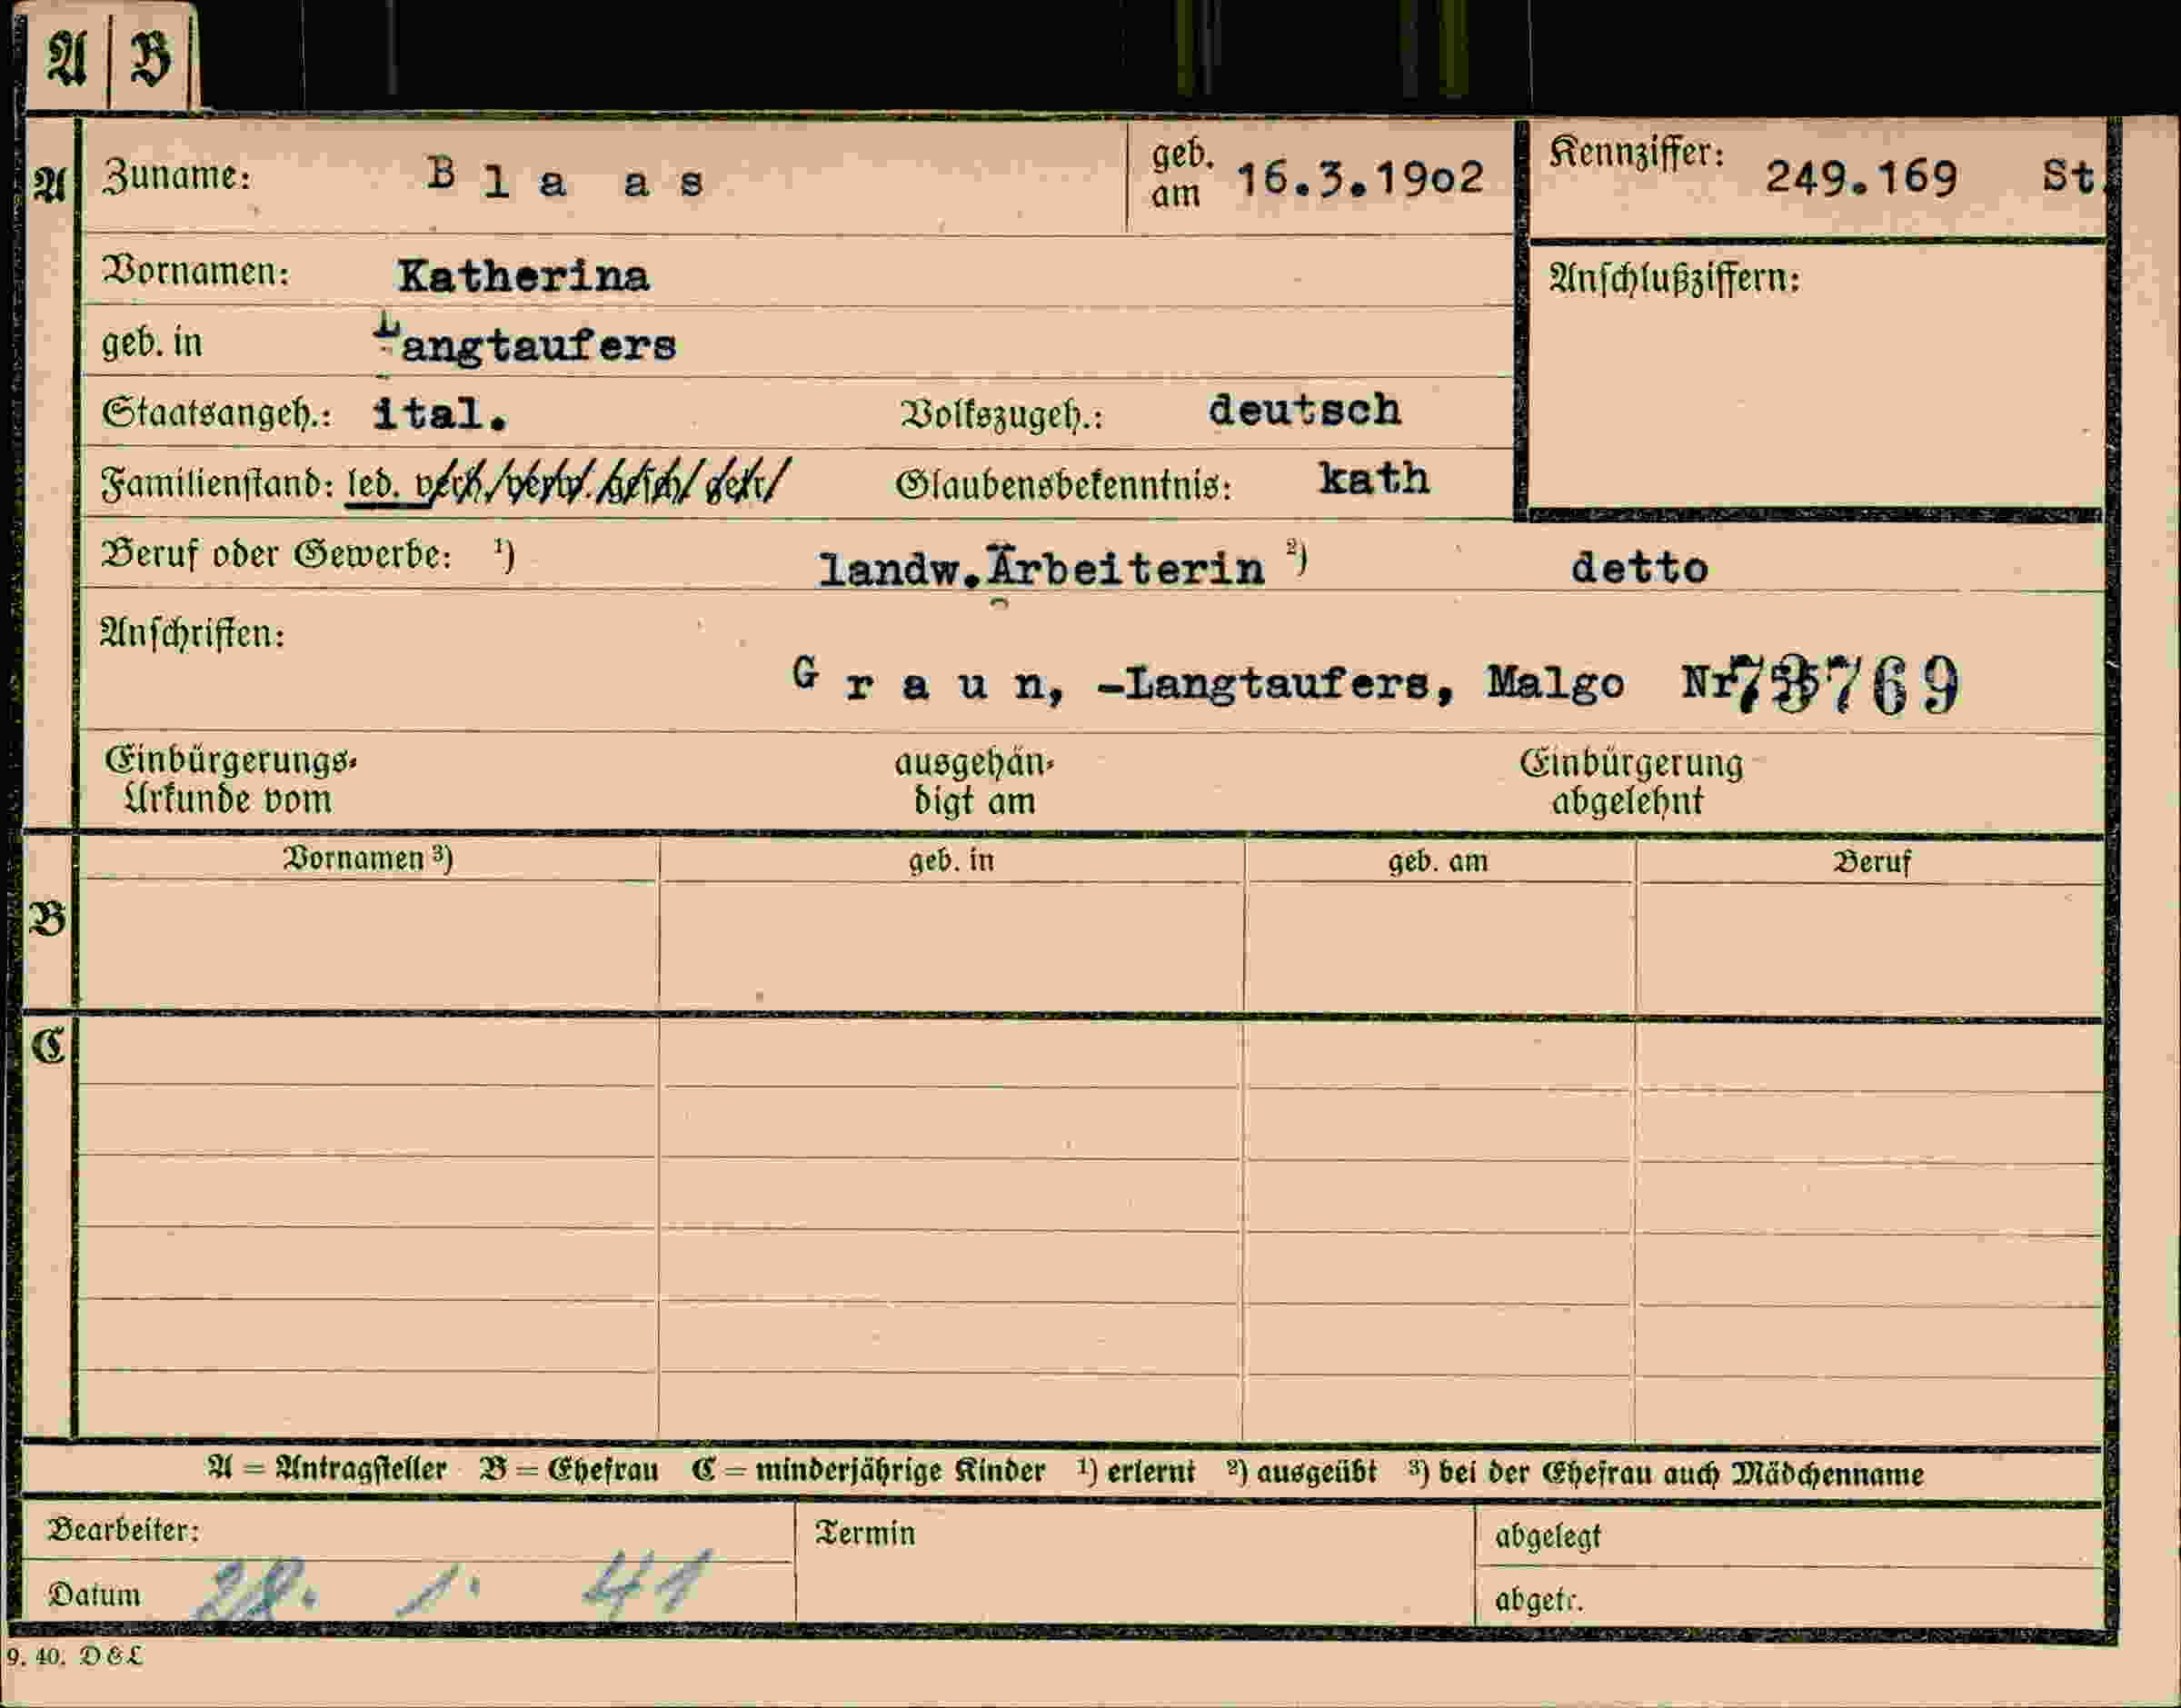 A B
A Zuname: B l a a s geb. am 16.3.19o2 Kennziffer: 249.169 St.
Vornamen: Katherina Anschlußziffern:
geb. in Langtaufers
Staatsangeh.: ital. Volkszugeh.: deutsch
Familienstand: led. verh. verw. gesch. getr. Glaubensbekenntnis: kath
Beruf oder Gewerbe: ¹) landw.Arbeiterin ²) detto
Anschriften:
G r a u n, -Langtaufers, Malgo Nr
Einbürgerungs- ausgehän- Einbürgerung
Urkunde vom digt am abgelehnt
Vornamen ³) geb. in geb. am Beruf
B
C
A = Antragsteller B = Ehefrau C = minderjährige Kinder ¹) erlernt ²) ausgeübt ³) bei der Ehefrau auch Mädchenname
Bearbeiter: Termin abgelegt
Datum 28. 1. 41 abgetr.
9. 40. D & L